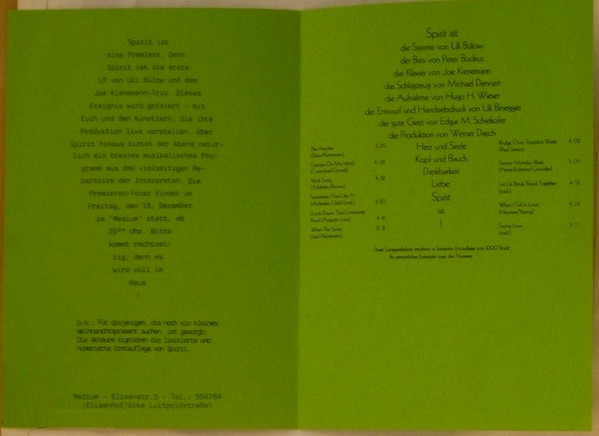 Spirit ist
eine Premiere. Denn
Spirit ist die erste
LP von Uli Bülow und dem
Joe Kienemann-Trio. Dieses
Ereignis wird gefeiert - mit
Euch und den Künstlern, die ihre
Produktion live vorstellen. Über
Spirit hinaus bietet der Abend natür-
lich ein breites musikalisches Pro-
gramm aus dem vielseitigen Re-
pertoire der Interpreten. Die
Premieren-Feier findet im
Freitag, den 19. Dezember
im "Medium" statt, ab
20³⁰ Uhr. Bitte
kommt rechtzei-
tig, denn es
wird voll im
Haus
!
p.s.: Für diejenigen, die noch ein kleines
Weihnachtspräsent suchen, ist gesorgt:
Die Akteure signieren die limitierte und
numerierte Erstauflage von Spirit.
Medium - Elisenstr.3 - Tel.: 554784
(Elisenhof/Ecke Luitpoldstraße)
Spirit ist
die Stimme von Uli Bülow
der Bass von Peter Bockius
das Klavier von Joe Kienemann
das Schlagzeug von Michael Dennert
die Aufnahme von Hugo H. Wieser
der Entwurf und Handsiebdruck von Ulli Binegger
der gute Geist von Edgar M. Scheikofer
die Produktion von Werner Dasch
Herz und Seele
Kopf und Bauch
Dankbarkeit
Liebe
Spirit
ist
!
The Preacher
Work Song
Sometimes I Feel Like A
Motherless Child (trad.)
When The Saints
Bridge Over Troubled Water
(Paul Simon)
Stormy Monday Blues
Let Us Break Bread Together
(trad.)
When I Fall In Love
(Heyman/Young)
Swing Low
(trad.)
Diese Langspielplatte erscheint in limitierter Erstauflage von 1000 Stück
Ihr persönliches Exemplar trägt die Nummer: